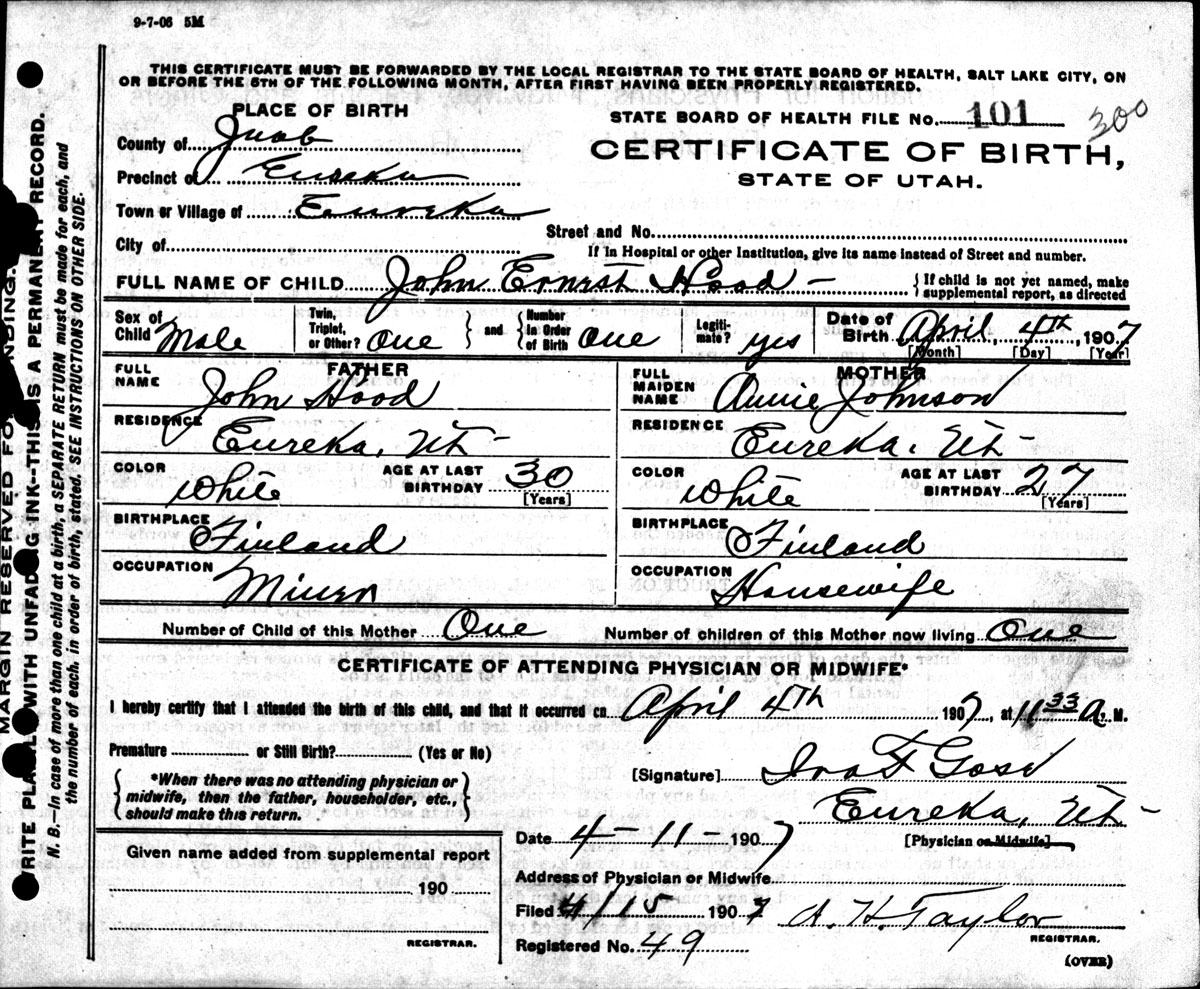 9-7-06 5M
THIS CERTIFICATE MUST BE FORWARDED BY THE LOCAL REGISTRAR TO THE STATE BOARD OF HEALTH, SALT LAKE CITY, ON
OR BEFORE THE 5TH OF THE FOLLOWING MONTH, AFTER FIRST HAVING BEEN PROPERLY REGISTERED.
PLACE OF BIRTH
STATE BOARD OF HEALTH FILE NO. 101 300
County of Juab
CERTIFICATE OF BIRTH,
Precinct of Eureka
STATE OF UTAH.
Town or Village of Eureka
Street and No.
City of
If in Hospital or other Institution, give its name instead of Street and number.
FULL NAME OF CHILD John Ernest Hood - {If child is not yet named, make supplemental report, as directed
Sex of Child Male Twin, Triplet, or Other? One } and { Number In Order of Birth One Legiti-mate? yes Date of Birth April, 4th, 1907
[Month] [Day] [Year]
FATHER MOTHER
FULL NAME John Hood FULL MAIDEN NAME Annie Johnson
RESIDENCE Eureka, Ut- RESIDENCE Eureka, Ut-
COLOR White AGE AT LAST BIRTHDAY 30 [Years] COLOR White AGE AT LAST BIRTHDAY 27 [Years]
BIRTHPLACE Finland BIRTHPLACE Finland
OCCUPATION Miner OCCUPATION Housewife
Number of Child of this Mother One Number of children of this Mother now living One
CERTIFICATE OF ATTENDING PHYSICIAN OR MIDWIFE*
I hereby certify that I attended the birth of this child, and that it occurred on April 4th 1907, at 11 33 A. M.
Premature or Still Birth? (Yes or No)
{*When there was no attending physician or
midwife, then the father, householder, etc.,
should make this return.}
[Signature] Ira F
Eureka, Ut-
Date 4-11-1907 [Physician or Midwife]
Given name added from supplemental report
190
REGISTRAR.
Address of Physician or Midwife
Filed 4/15 1907 A. H. Taylor
REGISTRAR.
Registered No. 49
(OVER)
MARGIN RESERVED FO NDING.
WRITE PLA WITH UNFADING INK--THIS IS A PERMANENT RECORD.
N. B.—In case of more than one child at a birth, a SEPARATE RETURN must be made for each, and
the number of each, in order of birth, stated. SEE INSTRUCTIONS ON OTHER SIDE.